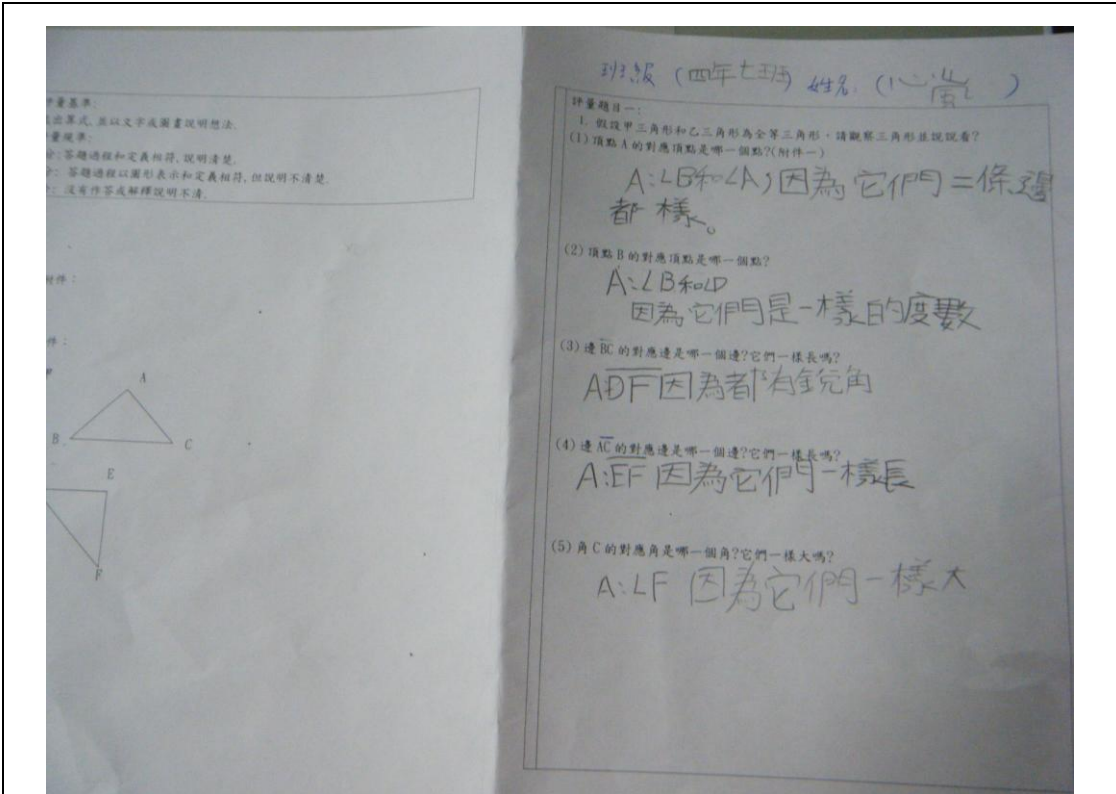 評量基準:
出算式,並以文字或圖畫說明想法.
量規準:
分:答題過程和定義相符,說明清楚.
分: 答題過程以圖形表示和定義相符,但說明不清楚.
沒有作答或解釋說明不清.
附件:
件:
A
B
C
E
F
班級 (四年七班) 姓名 (心 )
評量題目一:
1. 假設甲三角形和乙三角形為全等三角形,請觀察三角形並說說看?
(1)頂點 A 的對應頂點是哪一個點?(附件一)
A:∠B和∠A,因為它們二條邊
都樣。
(2)頂點 B 的對應頂點是哪一個點?
A:∠B和∠D
因為它們是一樣的度數
(3)邊 BC 的對應邊是哪一個邊?它們一樣長嗎?
A DF 因為都有銳角
(4)邊 AC 的對應邊是哪一個邊?它們一樣長嗎?
A:EF 因為它們一樣長
(5)角 C 的對應角是哪一個角?它們一樣大嗎?
A:∠F 因為它們一樣大